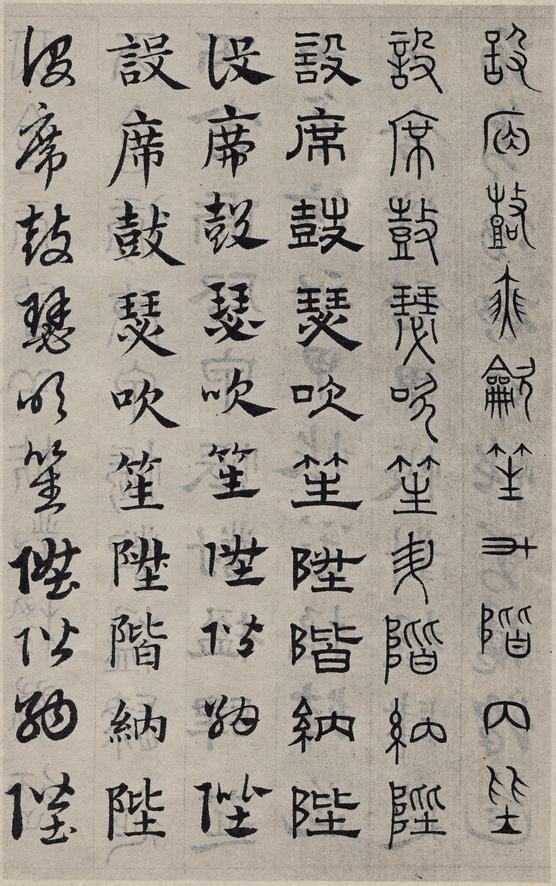 設席鼓瑟龡笙升階内陛
設席鼓瑟吹笙升階納陛
設席鼓瑟吹笙陞階納陛
設席鼓瑟吹笙陞階納陛
設席鼓瑟吹笙陞階納陛
設席鼓瑟吹笙陞階納陛